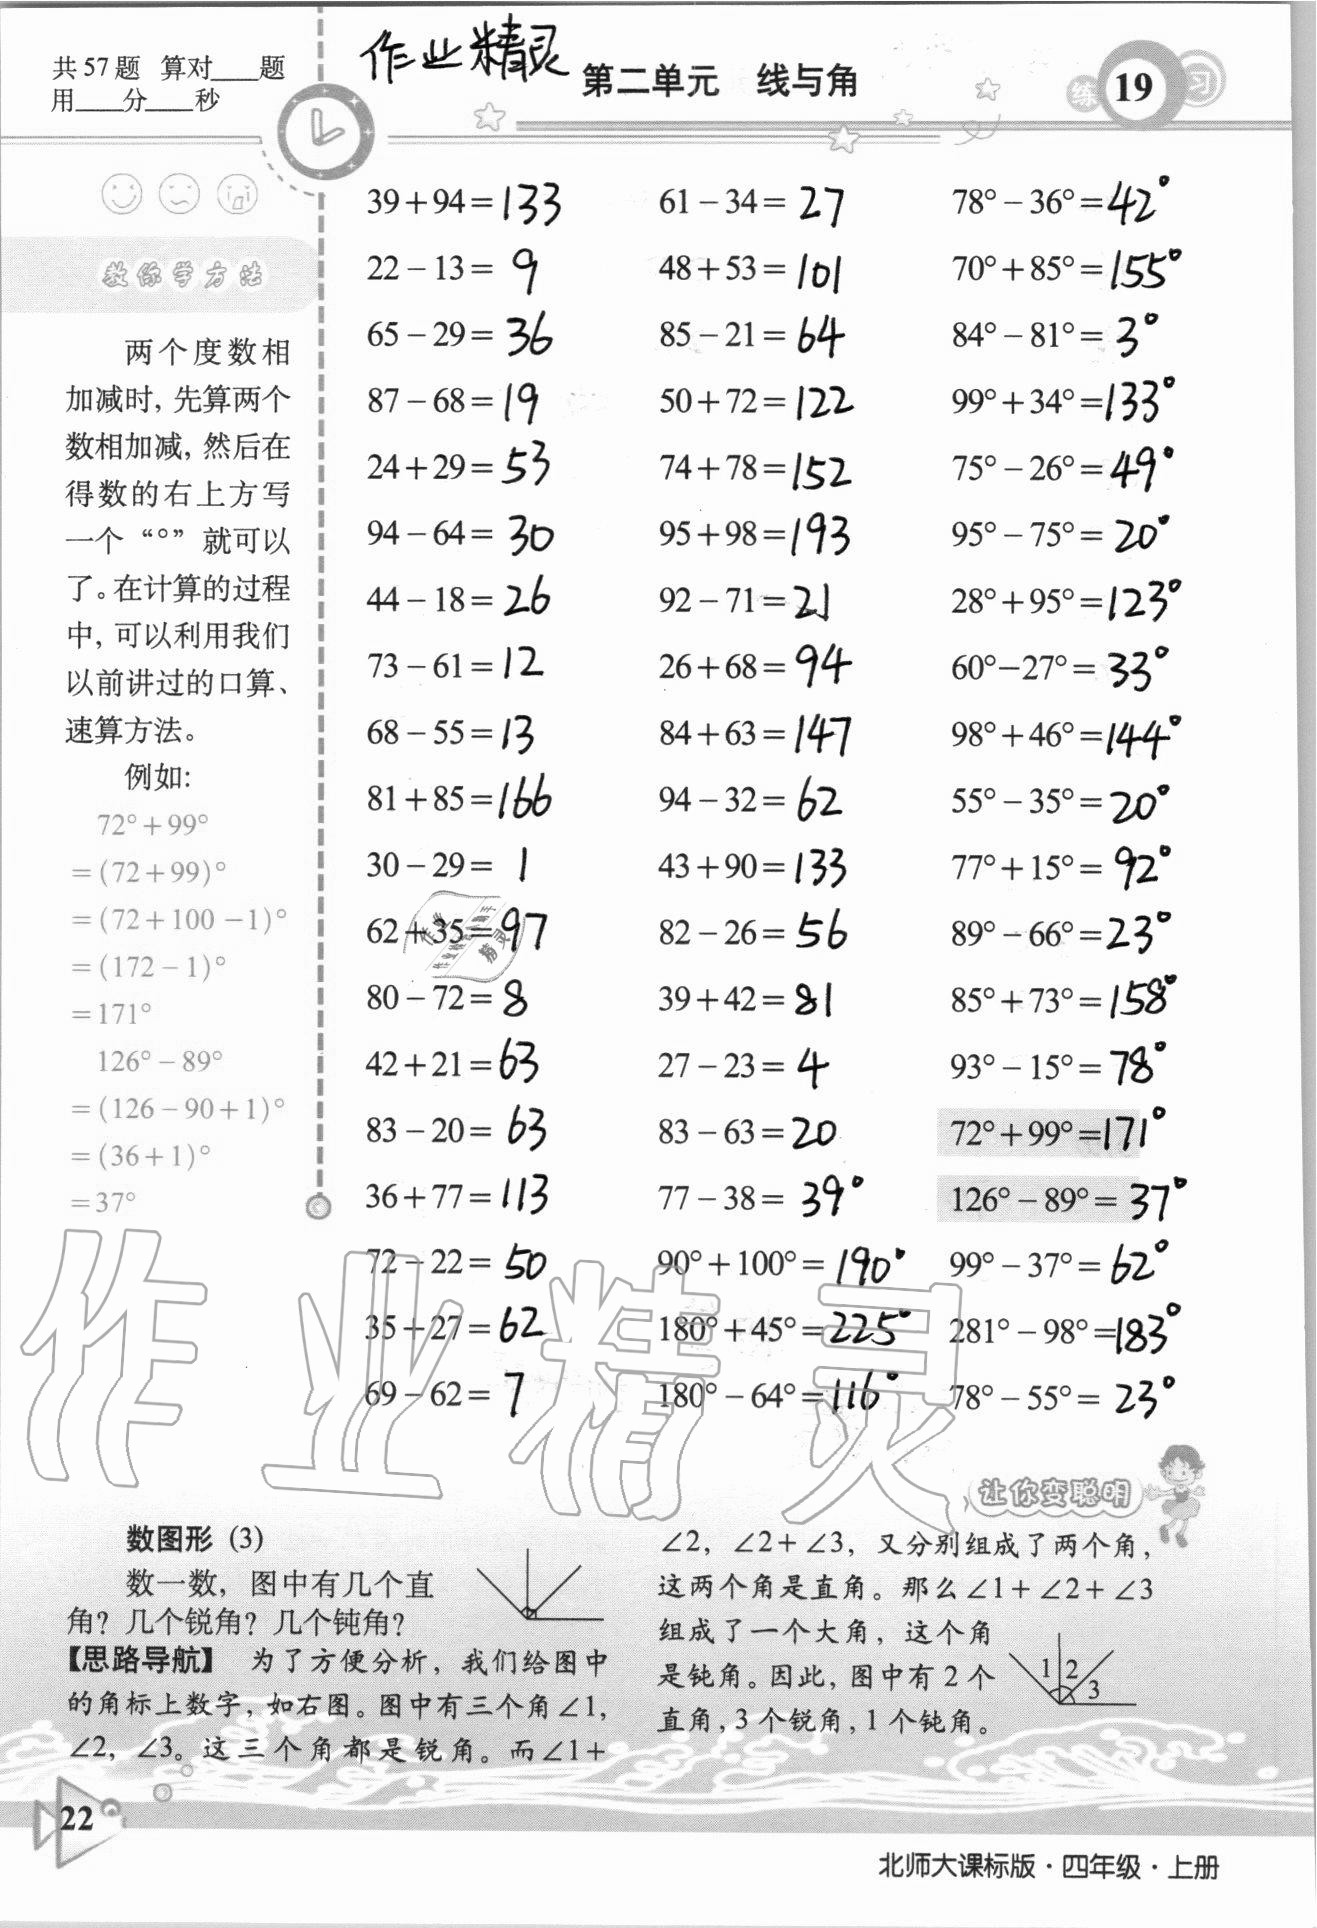 共57题 算对____题
用____分____秒
作业精灵
第二单元 线与角
练 19 习
教你学方法
两个度数相
加减时, 先算两个
数相加减, 然后在
得数的右上方写
一个“°”就可以
了。在计算的过程
中, 可以利用我们
以前讲过的口算、
速算方法。
例如:
72°+99°
=(72+99)°
=(72+100-1)°
=(172-1)°
=171°
126°-89°
=(126-90+1)°
=(36+1)°
=37°
39+94=133
22-13=9
65-29=36
87-68=19
24+29=53
94-64=30
44-18=26
73-61=12
68-55=13
81+85=166
30-29=1
62+35=97
80-72=8
42+21=63
83-20=63
36+77=113
72-22=50
35+27=62
69-62=7
61-34=27
48+53=101
85-21=64
50+72=122
74+78=152
95+98=193
92-71=21
26+68=94
84+63=147
94-32=62
43+90=133
82-26=56
39+42=81
27-23=4
83-63=20
77-38=39°
90°+100°=190°
180°+45°=225°
180°-64°=116°
78°-36°=42°
70°+85°=155°
84°-81°=3°
99°+34°=133°
75°-26°=49°
95°-75°=20°
28°+95°=123°
60°-27°=33°
98°+46°=144°
55°-35°=20°
77°+15°=92°
89°-66°=23°
85°+73°=158°
93°-15°=78°
72°+99°=171°
126°-89°=37°
99°-37°=62°
281°-98°=183°
78°-55°=23°
作业精灵
让你变聪明
数图形 (3)
数一数, 图中有几个直
角? 几个锐角? 几个钝角?
【思路导航】 为了方便分析, 我们给图中
的角标上数字, 如右图。图中有三个角∠1,
∠2, ∠3。这三个角都是锐角。而∠1+
∠2, ∠2+∠3, 又分别组成了两个角,
这两个角是直角。那么∠1+∠2+∠3
组成了一个大角, 这个角
是钝角。因此, 图中有2个
直角, 3个锐角, 1个钝角。
1 2 3
22
北师大课标版·四年级·上册